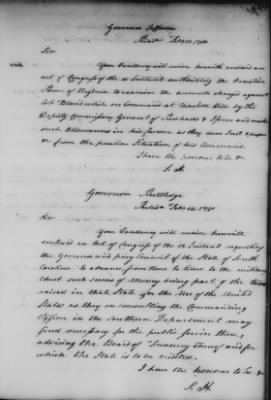 Governor Jefferson
Philada Feby 12 1780
Sir
Your Excellency will receive herewith enclosed an
act of Congress of the 12 Instant authorizing the Executive
Power of Virginia to examine the accounts charged against
Colo Bland while on Command at Charlotte Ville by the
Deputy Commissary General of Purchases & Issues and make
such Allowances in his favour as they deem Just & proper
& from the peculiar Situation of his Command.
I have the honour to be &c
S. H.
Governor Rutledge
Philada Feby 12 1780
Sir
Your Excellency will receive herewith
enclosed an Act of Congress of the 12 Instant requesting
the Governor and privy Council of the State of South
Carolina to advance, from time to time to the military
chest such sums of Money being part of the taxes
raised in that State for the Use of the United
States as they on consulting the Commanding
Officer in the Southern Department may
find necessary for the public service there,
advising the Board of Treasury thereof and for
which the State is to be credited.
I have the honour to be &c
S. H.